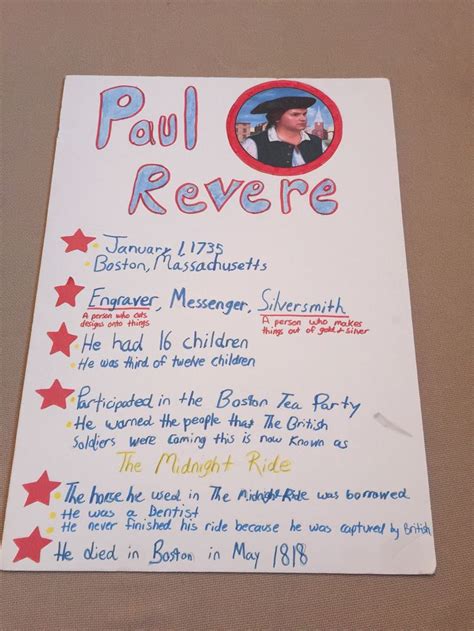 Paul
Revere
January 1, 1735
Boston, Massachusetts
Engraver, Messenger, Silversmith
A person who cuts
designs onto things
A person who makes
things out of gold + silver
He had 16 children
He was third of twelve children
Participated in the Boston Tea Party
He warned the people that The British
Soldiers were coming this is now known as
The Midnight Ride
The horse he used in The Midnight Ride was borrowed
He was a Dentist
He never finished his ride because he was captured by British
He died in Boston in May 1818